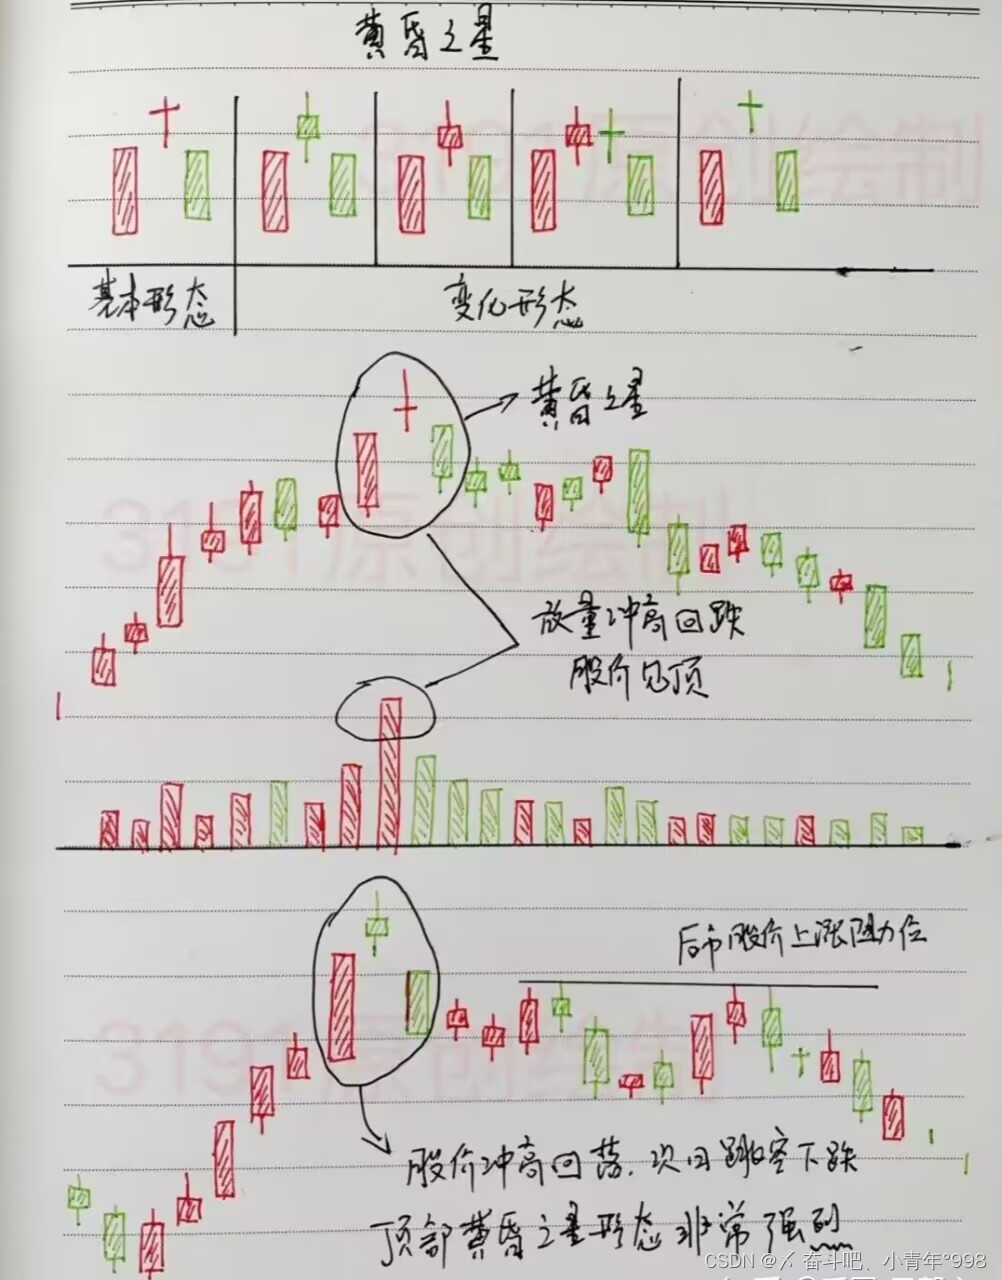 黄昏之星
基本形态
变化形态
黄昏之星
放量冲高回跌
股价见顶
后市股价上涨阻力位
股价冲高回落.次日跳空下跌
顶部黄昏之星形态非常强烈
3191原创绘制
3191原创绘制
3191原创绘制
CSDN @〆 奋斗吧、小青年°998